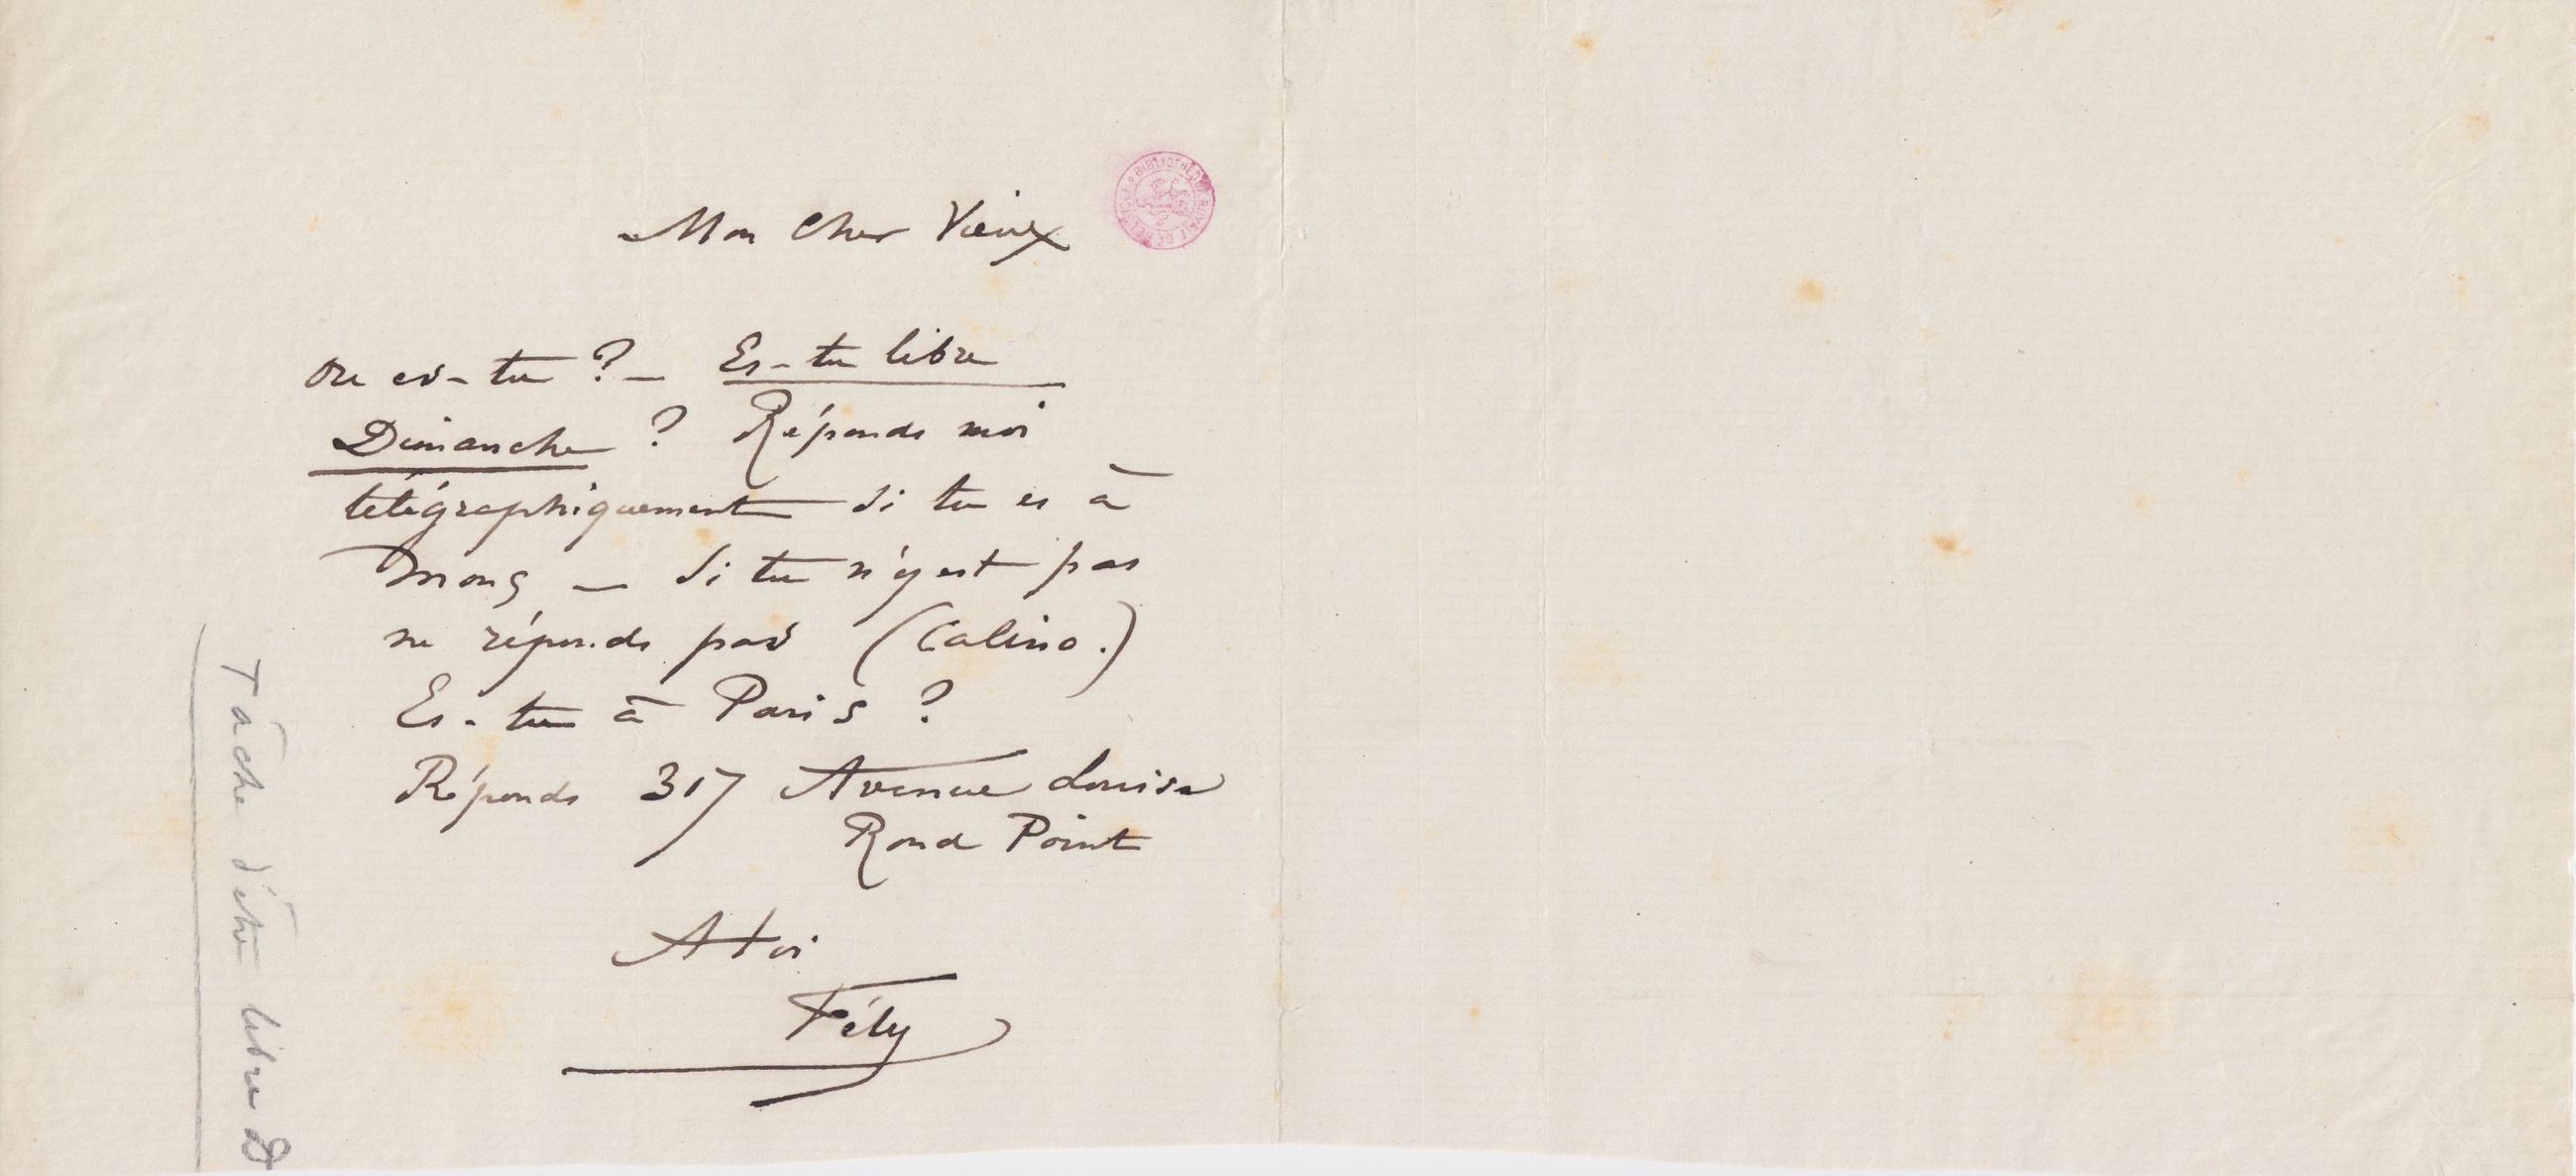 Mon Cher Vieux
Ou es-tu ? — Es-tu libre
Dimanche ? Réponds moi
télégraphiquement si tu es à
Mons — Si tu n'y est pas
ne réponds pas (Calino.)
Es-tu à Paris ?
Réponds 317 Avenue Louise
Rond Point
A toi
Fély
Tâche d'être libre D